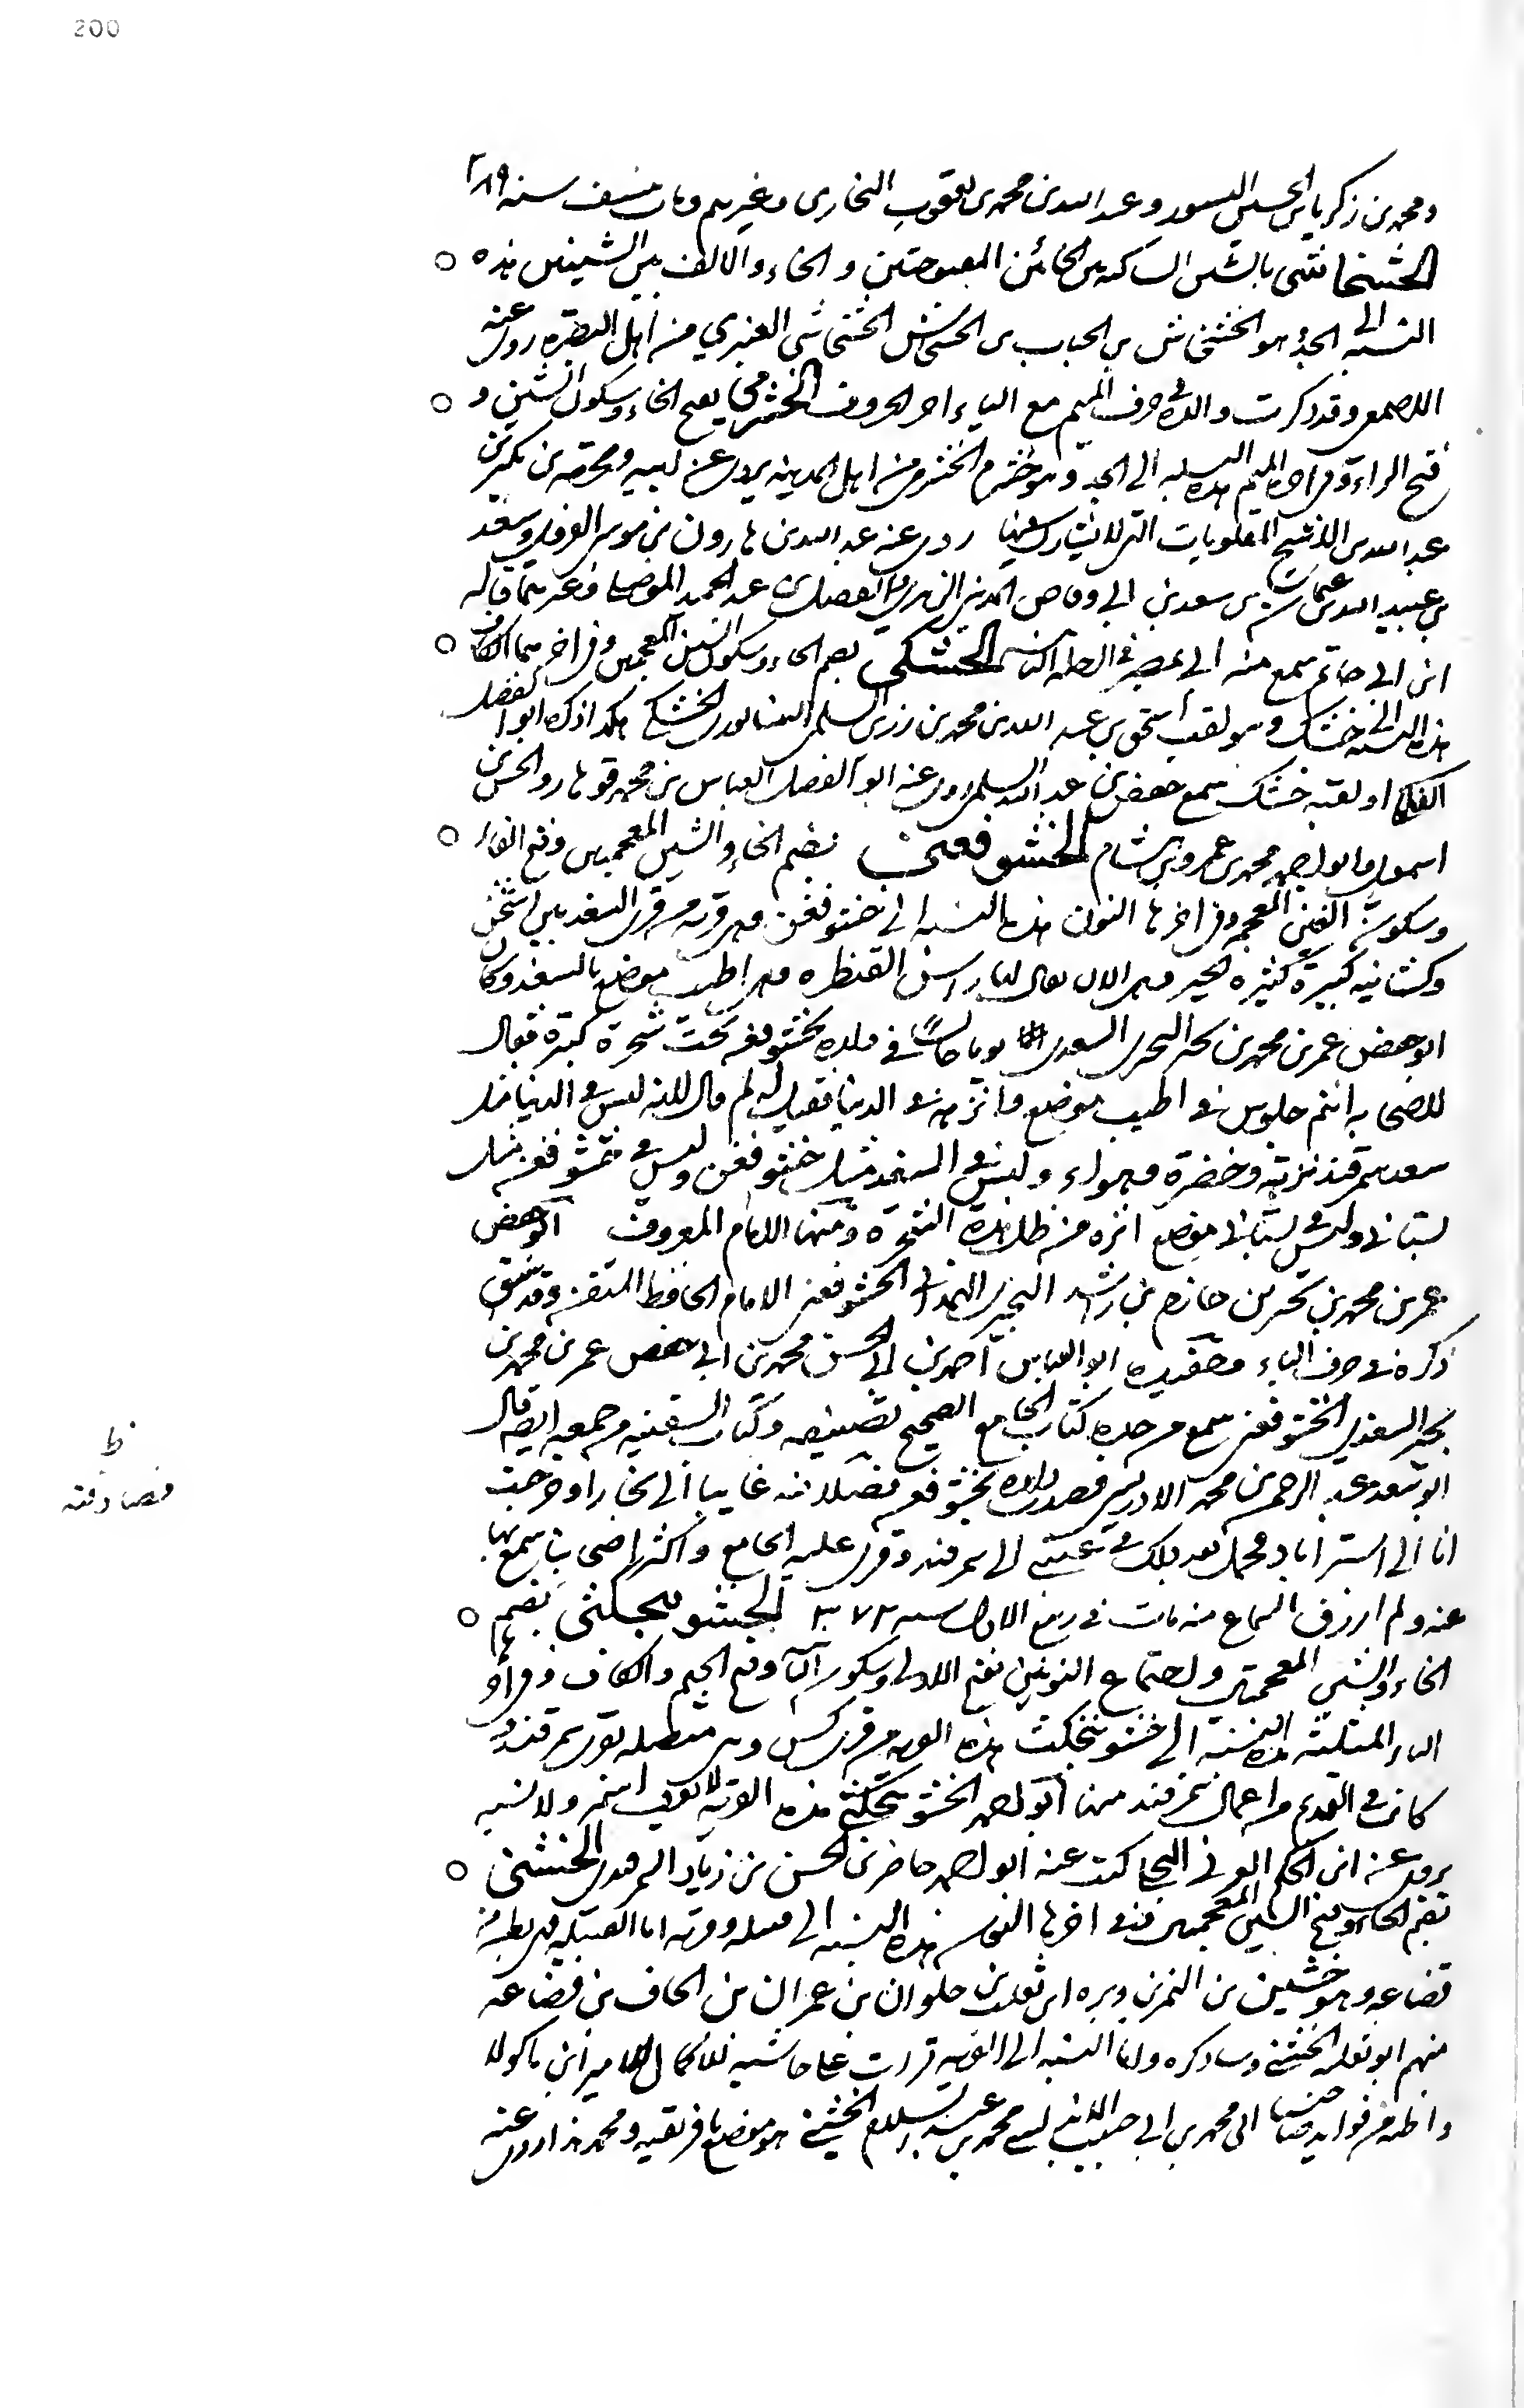 200
ومحمد بن زكريا بن الحسين النسفيون وعبد الله بن محمد بن يعقوب البخاري وغيرهم ومات بنسف سنه ٢٨٩
الخشخاشى بالشين الساكنه بين الخائين المعجمتين والخاء والالف بين الشينين هذه
النسبه الى الجد وهو الخشخاش بن الحباب بن الخشخاش الخشخاشى العنبري من اهل البصره روى عنه
الاصمعى وقد ذكرت والده فى حرف الميم مع الياء اخر الحروف الخشرمي بفتح الخاء وسكون الشين و
فتح الراء وفى اخره الميم هذه النسبه الى الجد وهو خشرم الخشرمى من اهل المدينه يروى عن ابيه ومخرمه بن بكير بن
عبد الله بن الاشج المقلوبات التى لا يشارك فيها روى عنه عبد الله بن هارون بن موسى الفروى وسعد
بن عبيد الله بن عثمان بن سعد بن ابى وقاص المدنى الزهرى الفضل بن عبد الحميد الموصلى وغيرهما قاله
ابن ابى حاتم سمع منه ابى بمصر فى الرحله الثانيه الخشكى بضم الخاء وسكون الشين المعجمين وفى اخرهما الكاف
هذه النسبه الى خشك وهو لقب اسحق بن عبد الله بن محمد بن رزين السلمى النيسابورى الخشكى هكذا ذكره ابو الفضل
الفلكى او لقبه خشك سمع حفص بن عبد الله السلمى روى عنه ابو الفضل العباس بن محمد قوهيار والحسن بن
اسمعيل وابو احمد محمد بن عمرو بن هشام الخشوفغنى بضم الخاء والشين المعجمين وفتح الفاء
وسكون الغين المعجمه وفى اخرها النون هذه النسبه الى خشوفغن وهى قريه من قرى السغد بين اشتيخن
وكشانيه كبيرة كثيرة الخير وهى الان يقال لها راس القنطره وهى اطيب موضع بالسغد وكان
ابو حفص عمر بن محمد بن بجير البجيرى السغدى يوما جالسا فى بلده بخشوفغن تحت شجرة كبيرة فقال
لاصحابه انتم جلوس فى اطيب موضع وانزهه فى الدنيا فقيل له لم قال لانه ليس فى الدنيا مثل
سغد سمرقند نزهة وخضرة وهواء وليس فى السغد مثل خشوفغن وليس فى خشوفغن مثل
بستانى وليس فى بستانى موضع انزه من ظل هذه الشجرة ومنها الامام المعروف ابو حفص
عمر بن محمد بن بجير بن خازم بن راشد البجيرى الهمدانى الخشوفغنى الامام الحافظ المتقن وقد سبق
ذكره فى حرف الباء وحفيده ابو العباس احمد بن ابى الحسن محمد بن ابى حفص عمر بن محمد بن
بجير السغدى الخشوفغنى سمع من جده كتاب الجامع الصحيح تصنيفه وكتاب السفينه من جمعه ايضا قال
ابو سعد عبد الرحمن بن محمد الادريسى قصدت بلده بخشوفغن فضلا انه غايبا الى بخارا وخرجت
انا الى استراباد فحمل بعد ذلك فى غيبتى الى سمرقند وقرى عليه الجامع واكثر اصحابنا سمع بها
عنه ولم ارزق السماع منه مات فى ربيع الاول سنه ٣٧٢ الخشونجكثى بضم
الخاء والشين المعجمتين واجتماع النونين بفتح الاولى وسكون الثانيه وفتح الجيم والكاف وفى اخرها
الثاء المثلثه هذه النسبه الى خشوننجكث هذه القريه من قرى كس وهى متصله بقرى سمرقند
كانت فى القديم من اعمال سمرقند منها ابو احمد الخشونجكثى هذه القريه لا يعرف اسمه ولا نسبه
يروى عن ابن الحكم العرنى البجلى كتب عنه ابو احمد حاضر بن الحسن بن زياد السمرقندى الخشنى
بضم الخاء وفتح الشين المعجمتين وفى اخرها النون هذه النسبه الى قبيله وقريه اما القبيله فهى بطن من
قضاعه وهو خشين بن النمر بن وبره ابن ثعلب بن حلوان بن عمران بن الحاف بن قضاعه
منهم ابو ثعلبه الخشنى وساذكره واما النسبه الى القريه قرات على حاشيه الاكمال للامير ابن ماكولا
واظنه من فوايد صاحبنا الى محمد بن ابى حبيب الاندلسى محمد بن عبد السلام الخشنى هو موضع بافريقيه ومحمد هذا روى عنه
ظ
فصادفته